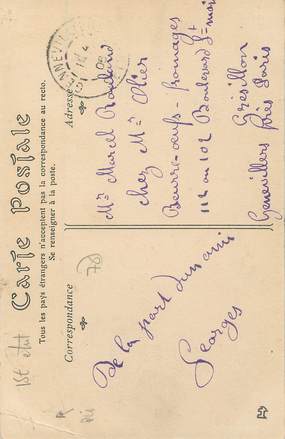 Carte Postale
Tous les pays étrangers n'acceptent pas la correspondance au recto.
Se renseigner à la poste.
Correspondance
Adresse
De la part d'un ami
Georges
Mr Marcel
chez Mr Olier
Beurre - œufs - fromages
112 ou 102 Boulevard
Grésillon
Genevilliers près Paris
78
1St état